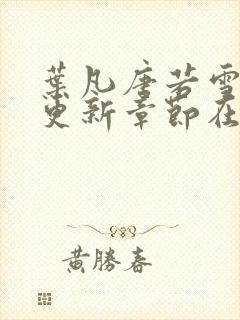 葉凡唐若雪
更新章節在
黃勝春